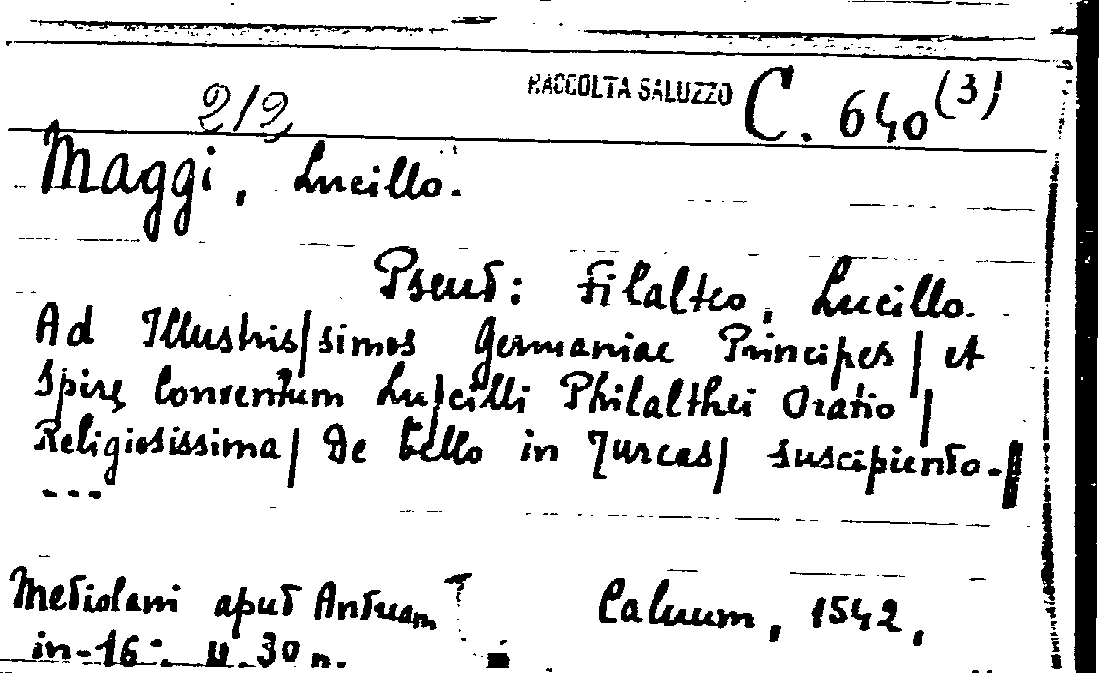 2/2 RACCOLTA SALUZZO C. 640 (3)
Maggi, Lucillo.
Pseud: Filalteo, Lucillo.
Ad Illustris/simos Germaniae Principes/ et
Spirę Conventum Lu/cilli Philalthei Oratio/
Religiosissima/ De bello in Turcas/ suscipiendo.
---
Mediolani apud Antium Calvum, 1542,
in-16º.